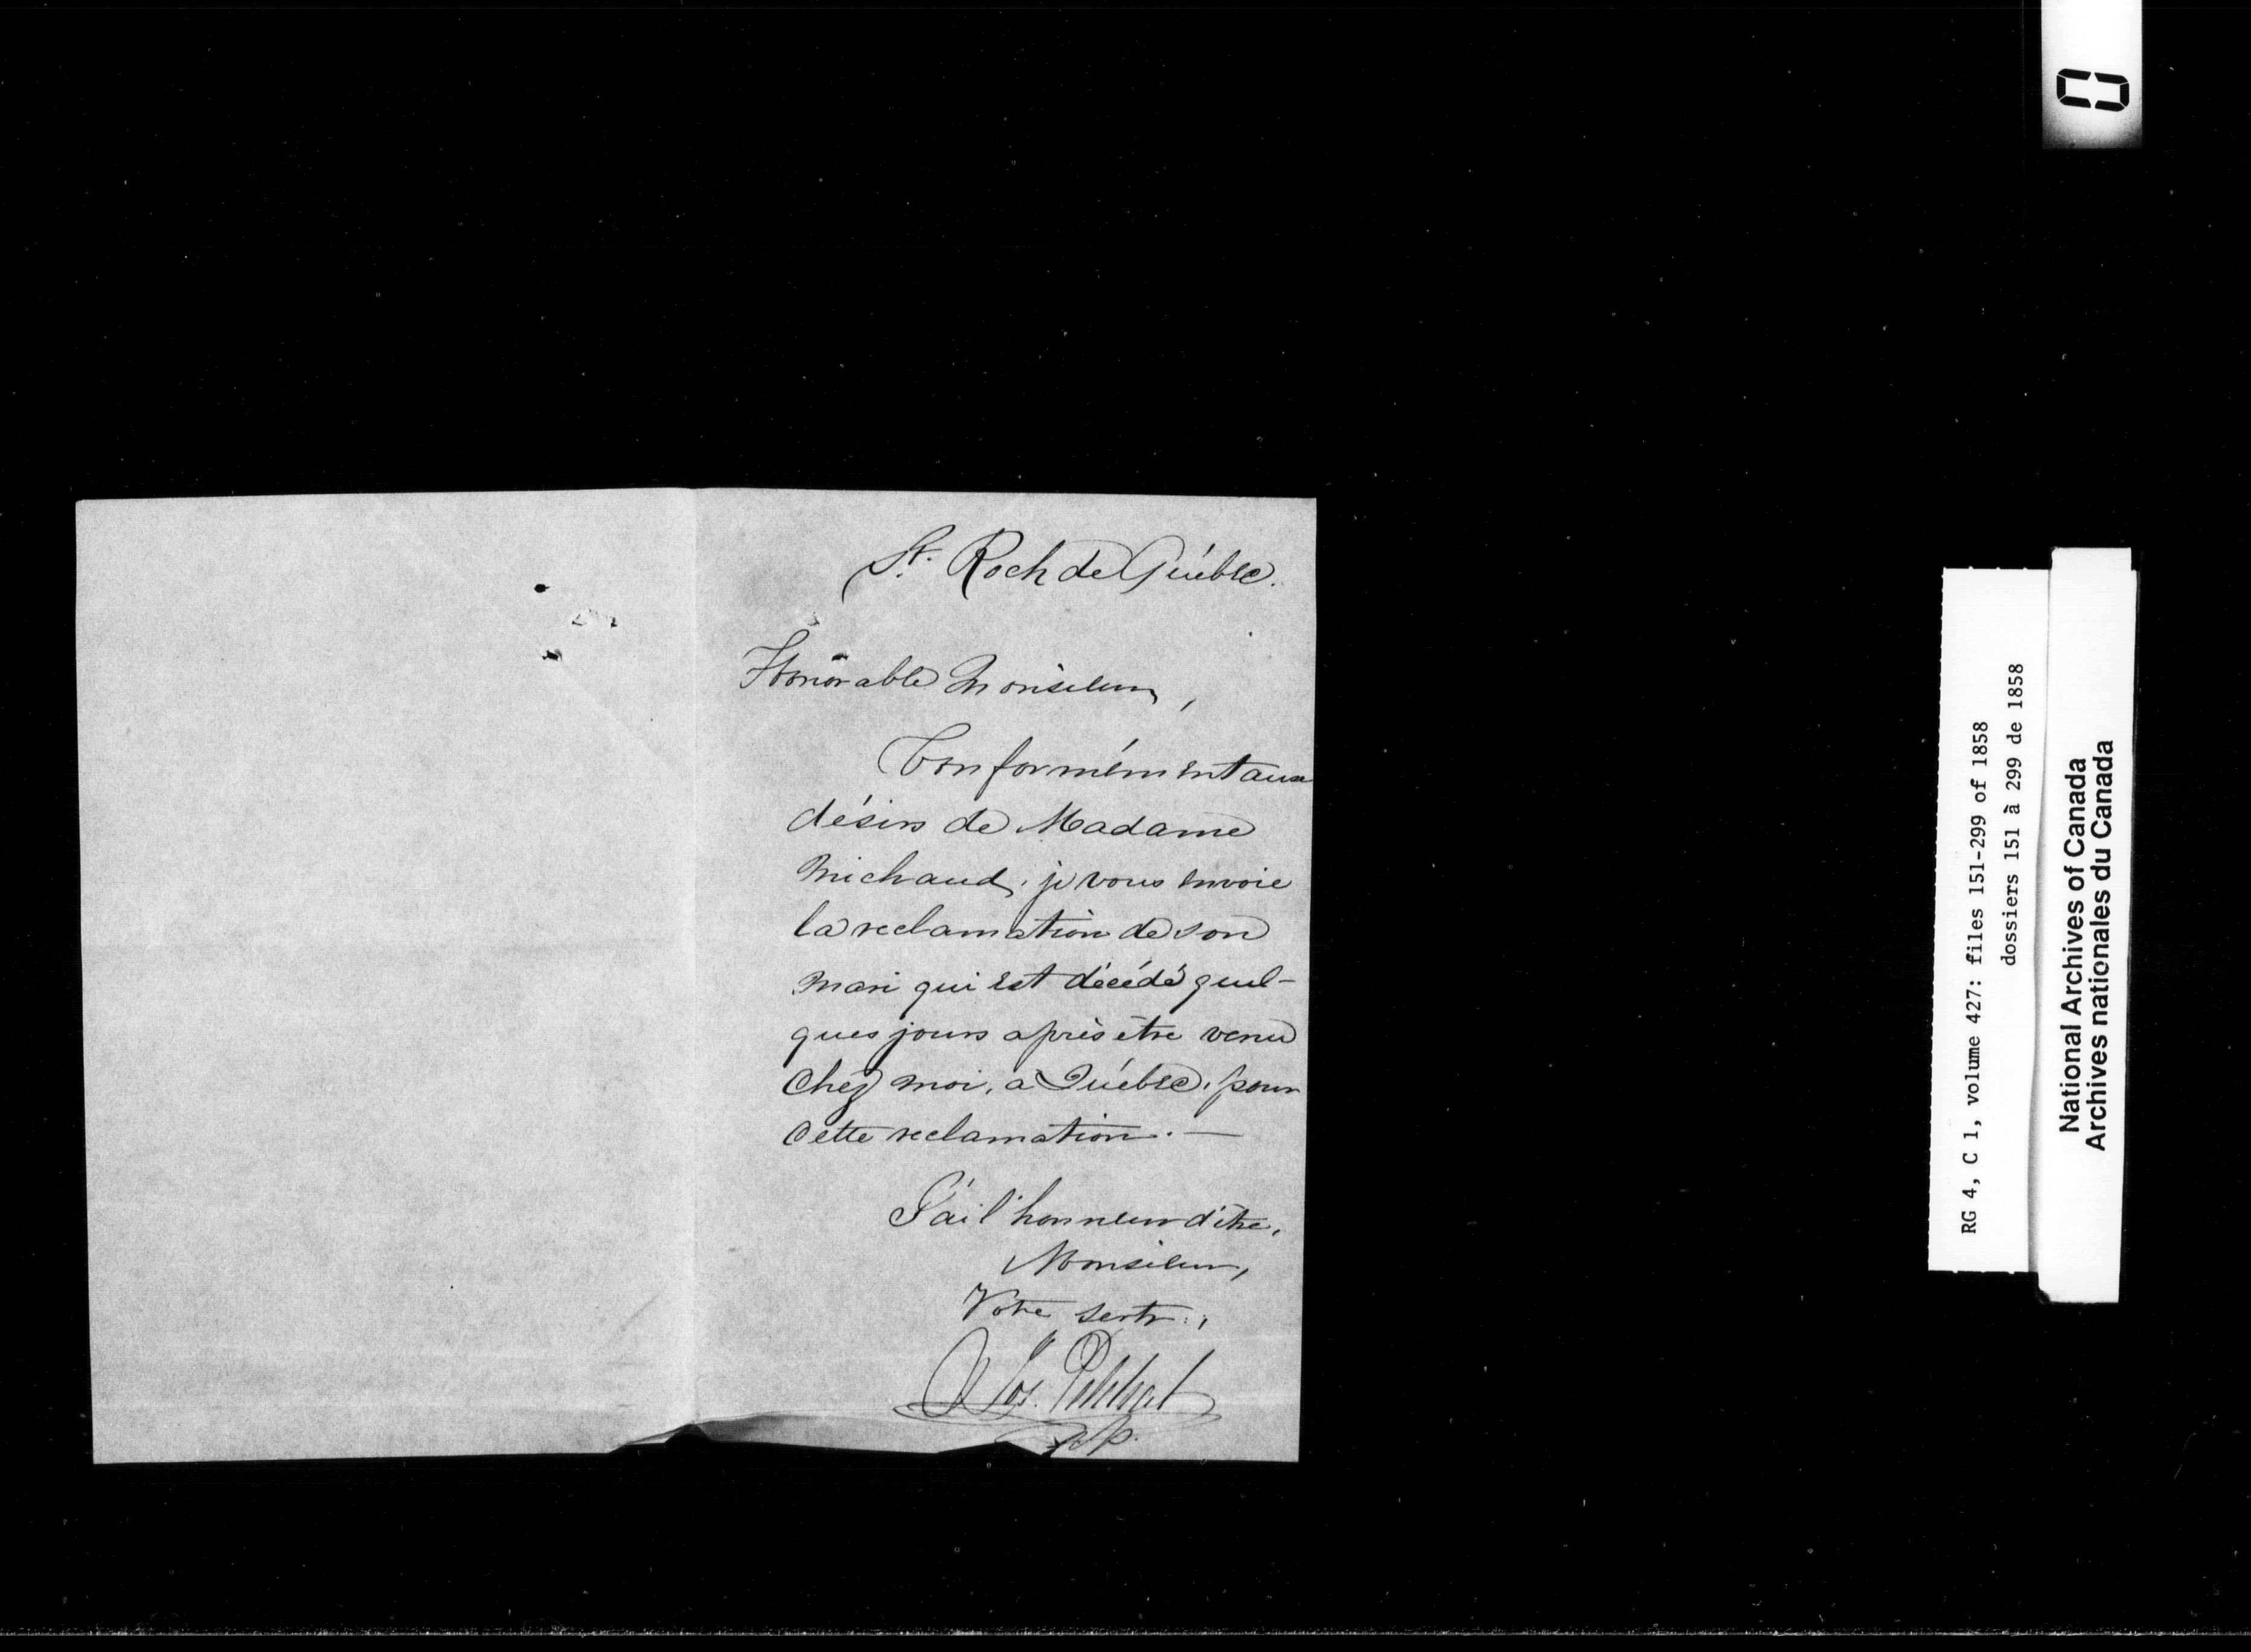 St. Roch de Québec.
Honorable Monsieur,
Conformément aux
désirs de Madame
Michaud, je vous envoie
la reclamation de son
mari qui est décédé quel-
ques jours après être venu
chez moi, a Québec, pour
cette reclamation. —
J'ai l'honneur d'être,
Monsieur,
Votre sertr.,
Jos.
RG 4, C 1, volume 427: files 151-299 of 1858
dossiers 151 à 299 de 1858
National Archives of Canada
Archives nationales du Canada
0